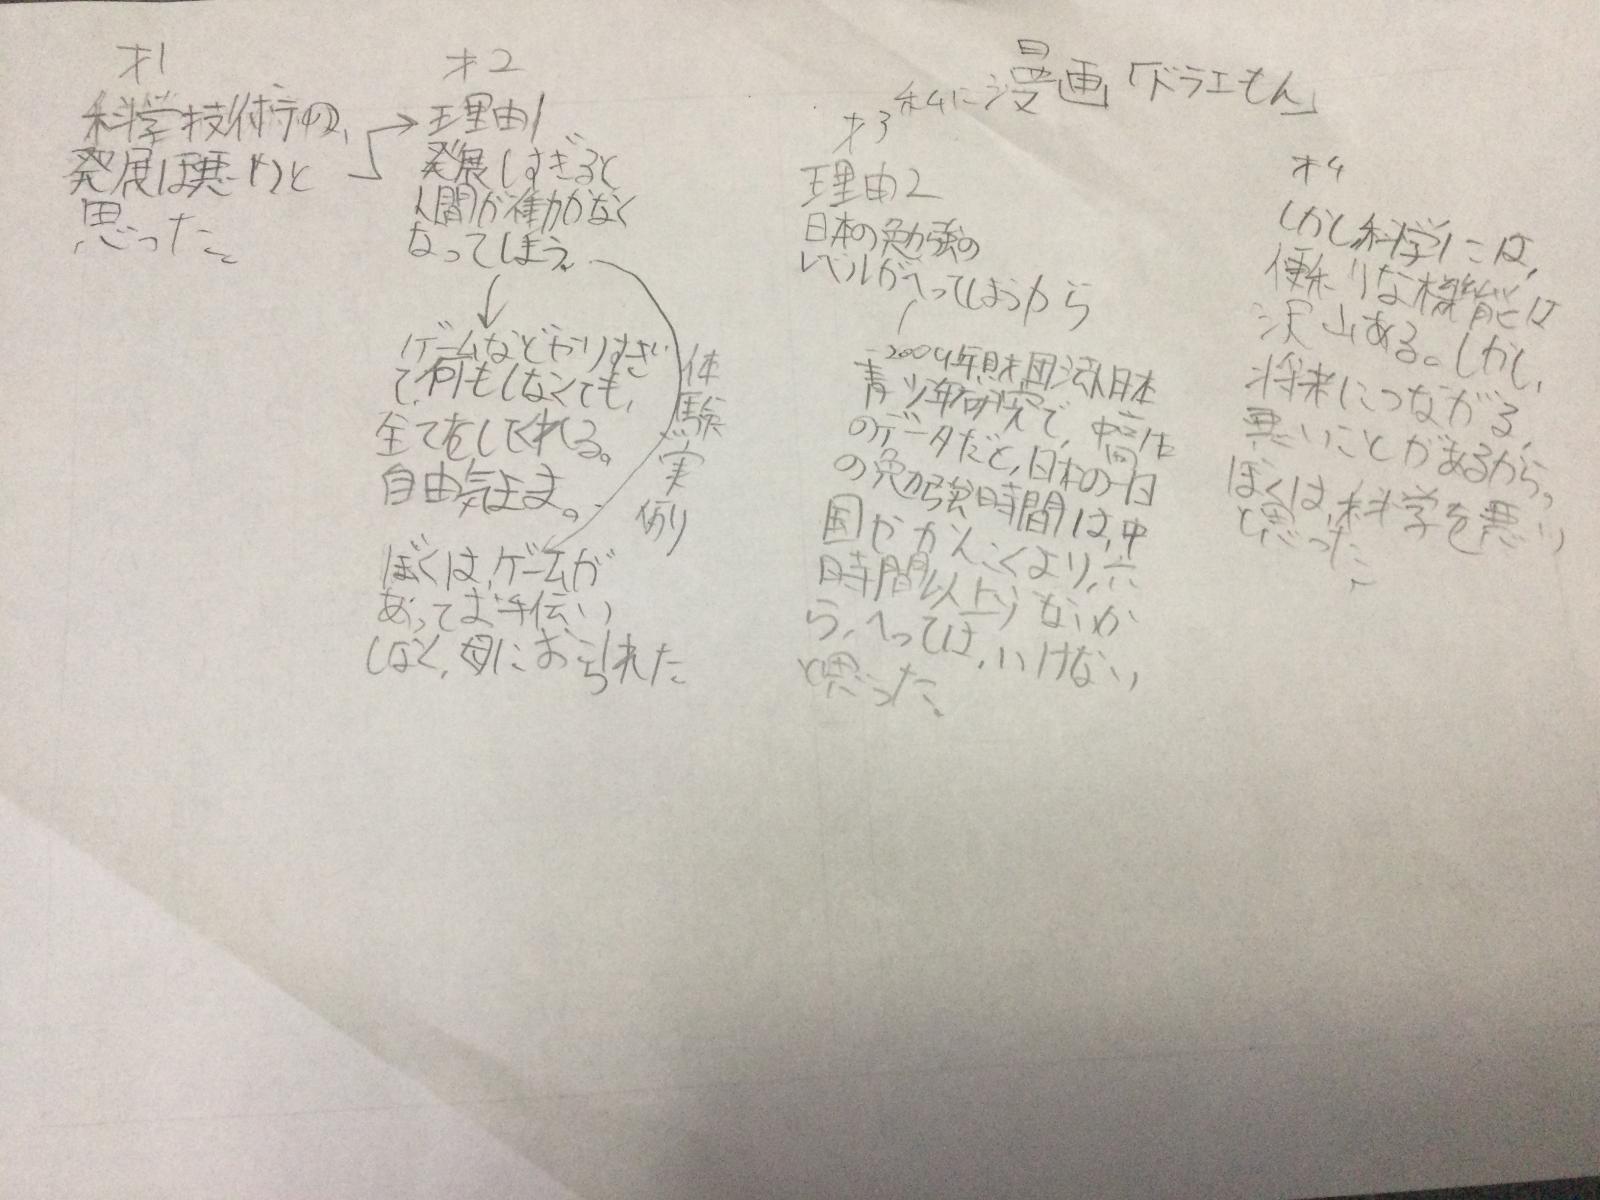 才1
科学技術の、
発展は悪いと
思った。
才2
理由1
発展しすぎると
人間が働かなく
なってしまう。
ゲームなどやりすぎ
て、何もしなくても、
全てをしてくれる。
自由気まま。
体験実例
ぼくは、ゲームが
あってお手伝い
しなく、母におこられた
私に漫画「ドラエもん」
才3
理由2
日本の勉強の
レベルがへってしまうから
2009年財団法人日本
青少年研究で、中高生
のデータだと、日本の一日
の勉強時間は、中
国やかんこくより、六
時間以上少ないか
ら、へっては、いけない
と思った。
才4
しかし科学には、
便利な機能は
沢山ある。しかし、
将来につながる、
悪いことがあるから。
ぼくは、科学を悪い
と思った。